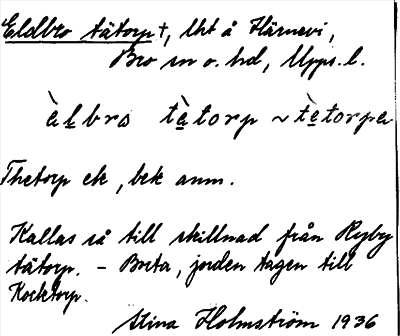 Eldbro tätorp †, lht å Härnevi,
Bro sn o. hd, Upps. l.
èlbro tètorp ~ tètorpa
Thetorp ek, bek anm.
Kallas så till skillnad från Ryby
tätorp. – Borta, jorden tagen till
Kocktorp.
Stina Holmström 1936